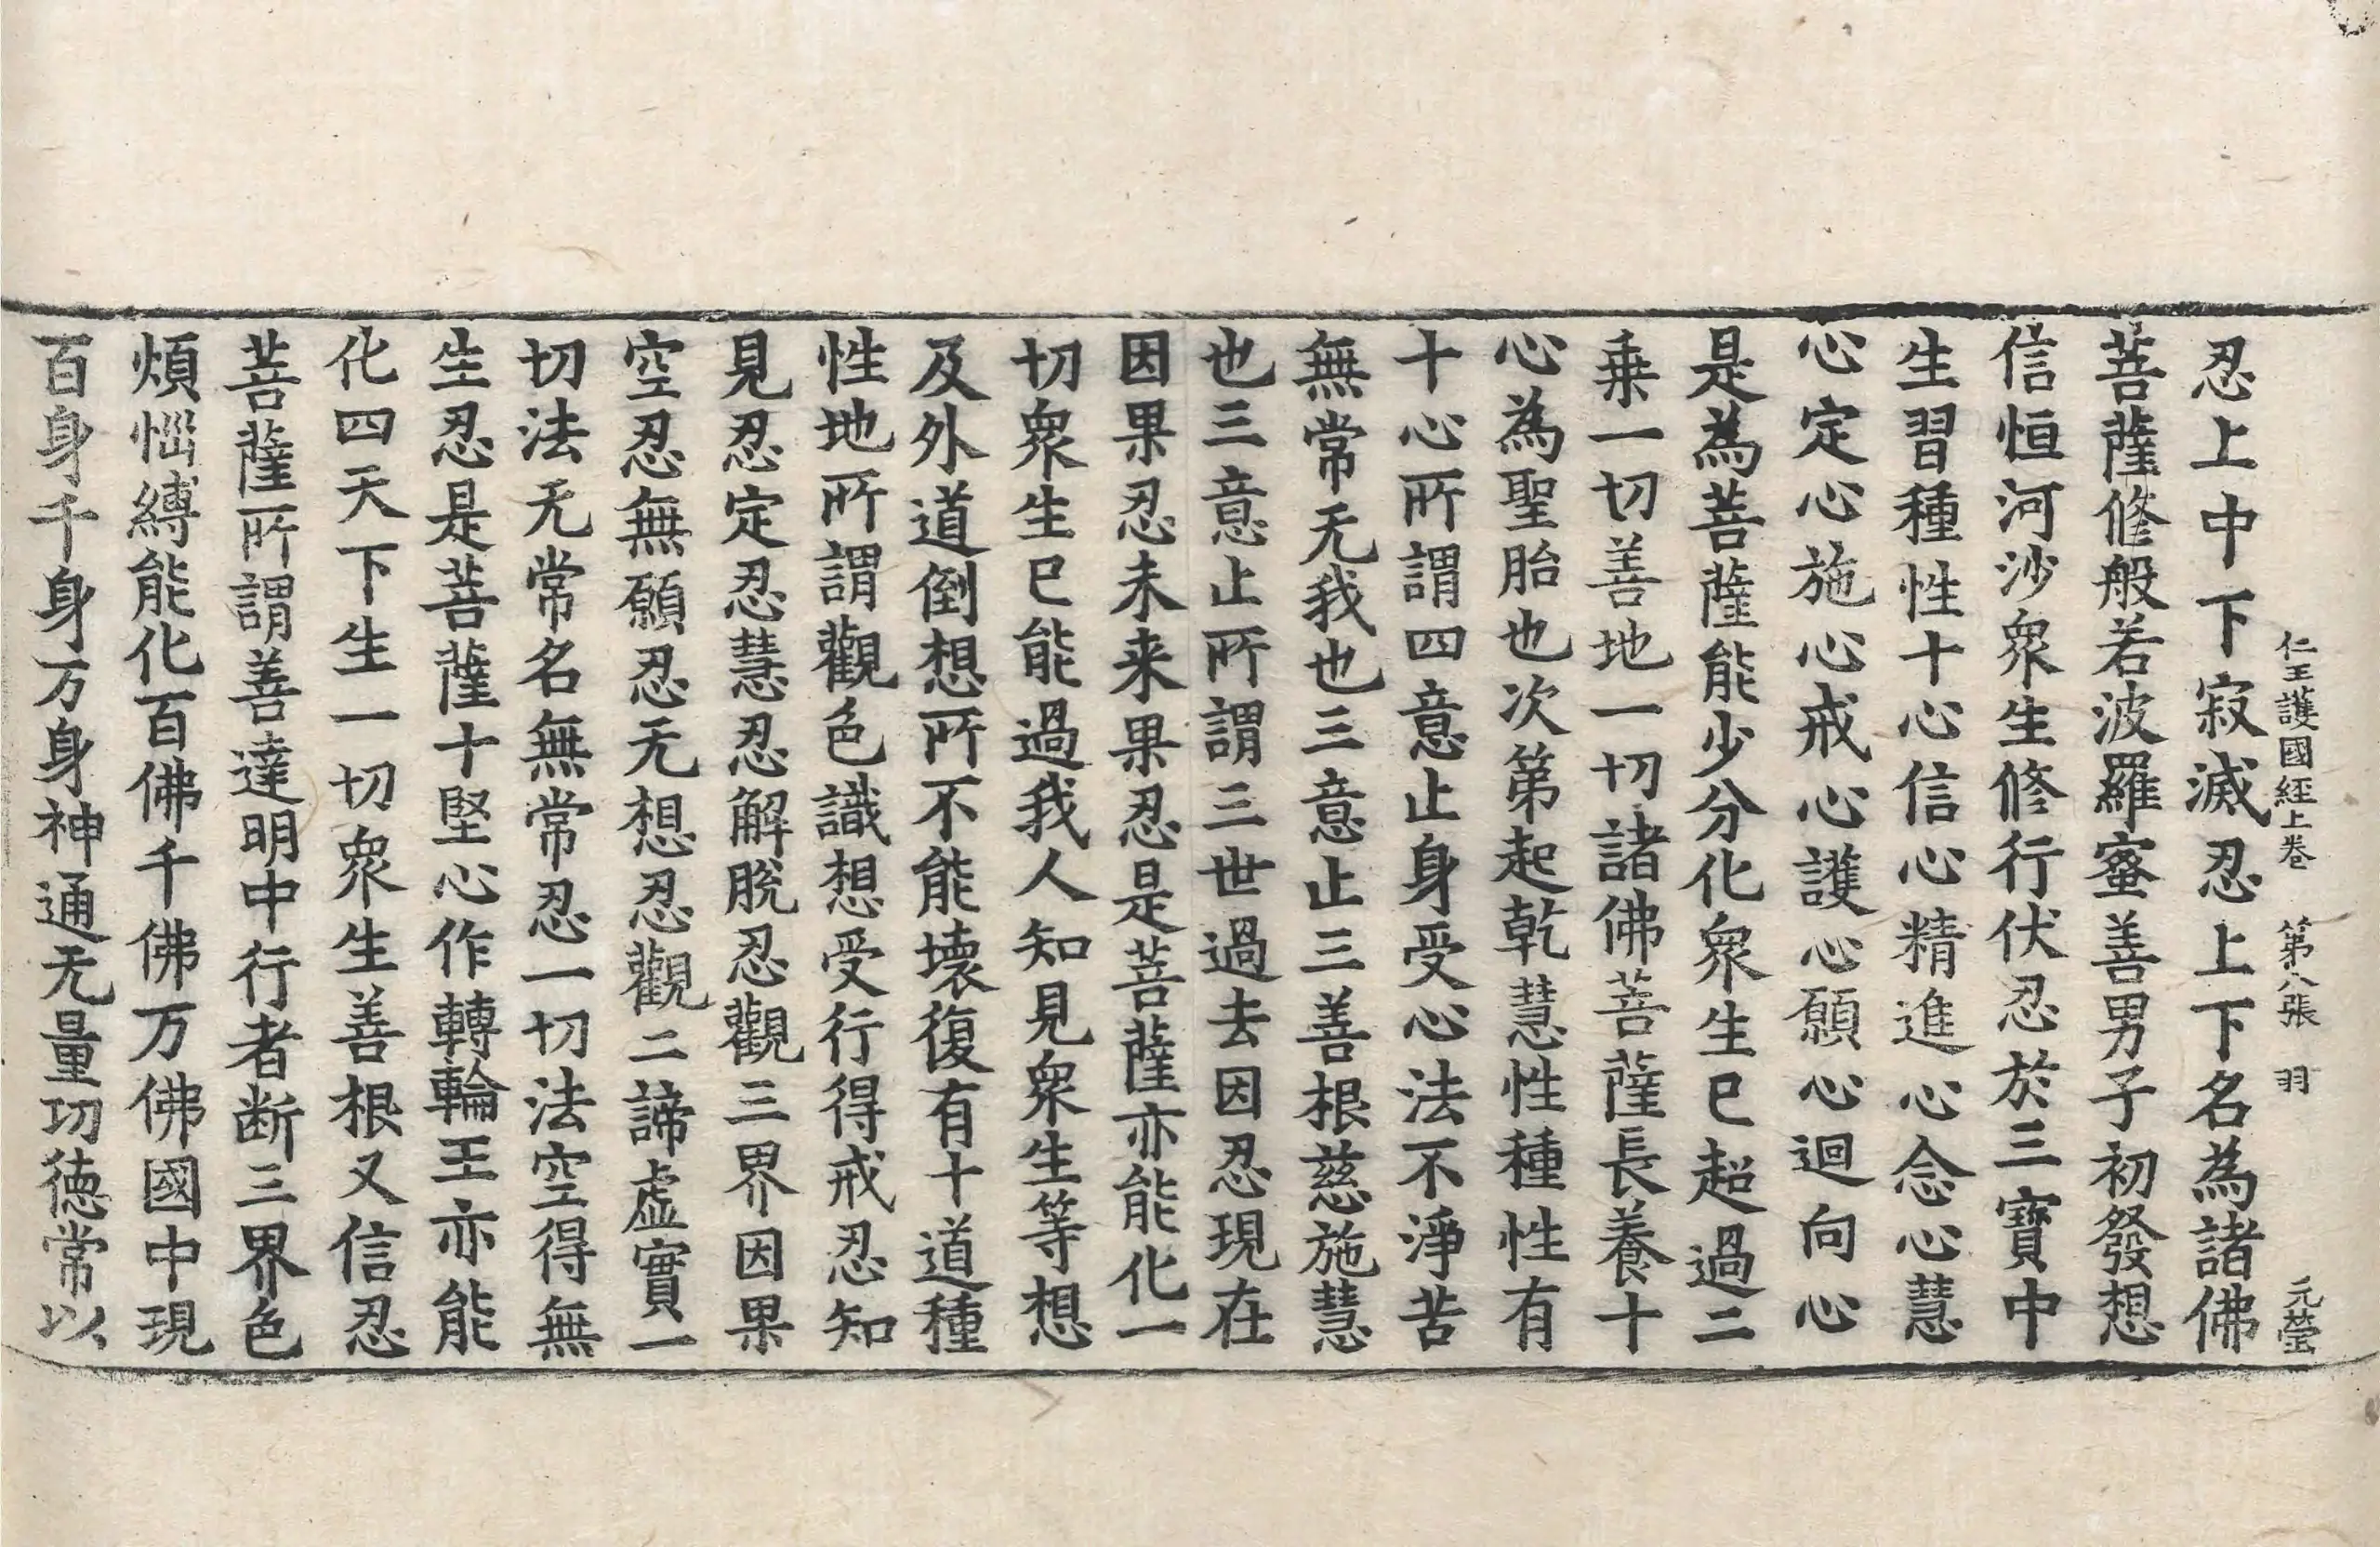 仁王護國經上卷 第八張 羽 元瑩
忍上中下寂滅忍上下名為諸佛
菩薩修般若波羅蜜善男子初發想
信恒河沙衆生修行伏忍於三寶中
生習種性十心信心精進心念心慧
心定心施心戒心護心願心迴向心
是為菩薩能少分化衆生已超過二
乗一切善地一切諸佛菩薩長養十
心為聖胎也次第起乾慧性種性有
十心所謂四意止身受心法不淨苦
無常无我也三意止三善根慈施慧
也三意止所謂三世過去因忍現在
因果忍未来果忍是菩薩亦能化一
切衆生已能過我人知見衆生等想
及外道倒想所不能壊復有十道種
性地所謂觀色識想受行得戒忍知
見忍定忍慧忍解脫忍觀三界因果
空忍無願忍无想忍觀二諦虚實一
切法无常名無常忍一切法空得無
生忍是菩薩十堅心作轉輪王亦能
化四天下生一切衆生善根又信忍
菩薩所謂善達明中行者断三界色
煩惱縛能化百佛千佛万佛國中現
百身千身万身神通无量功徳常以